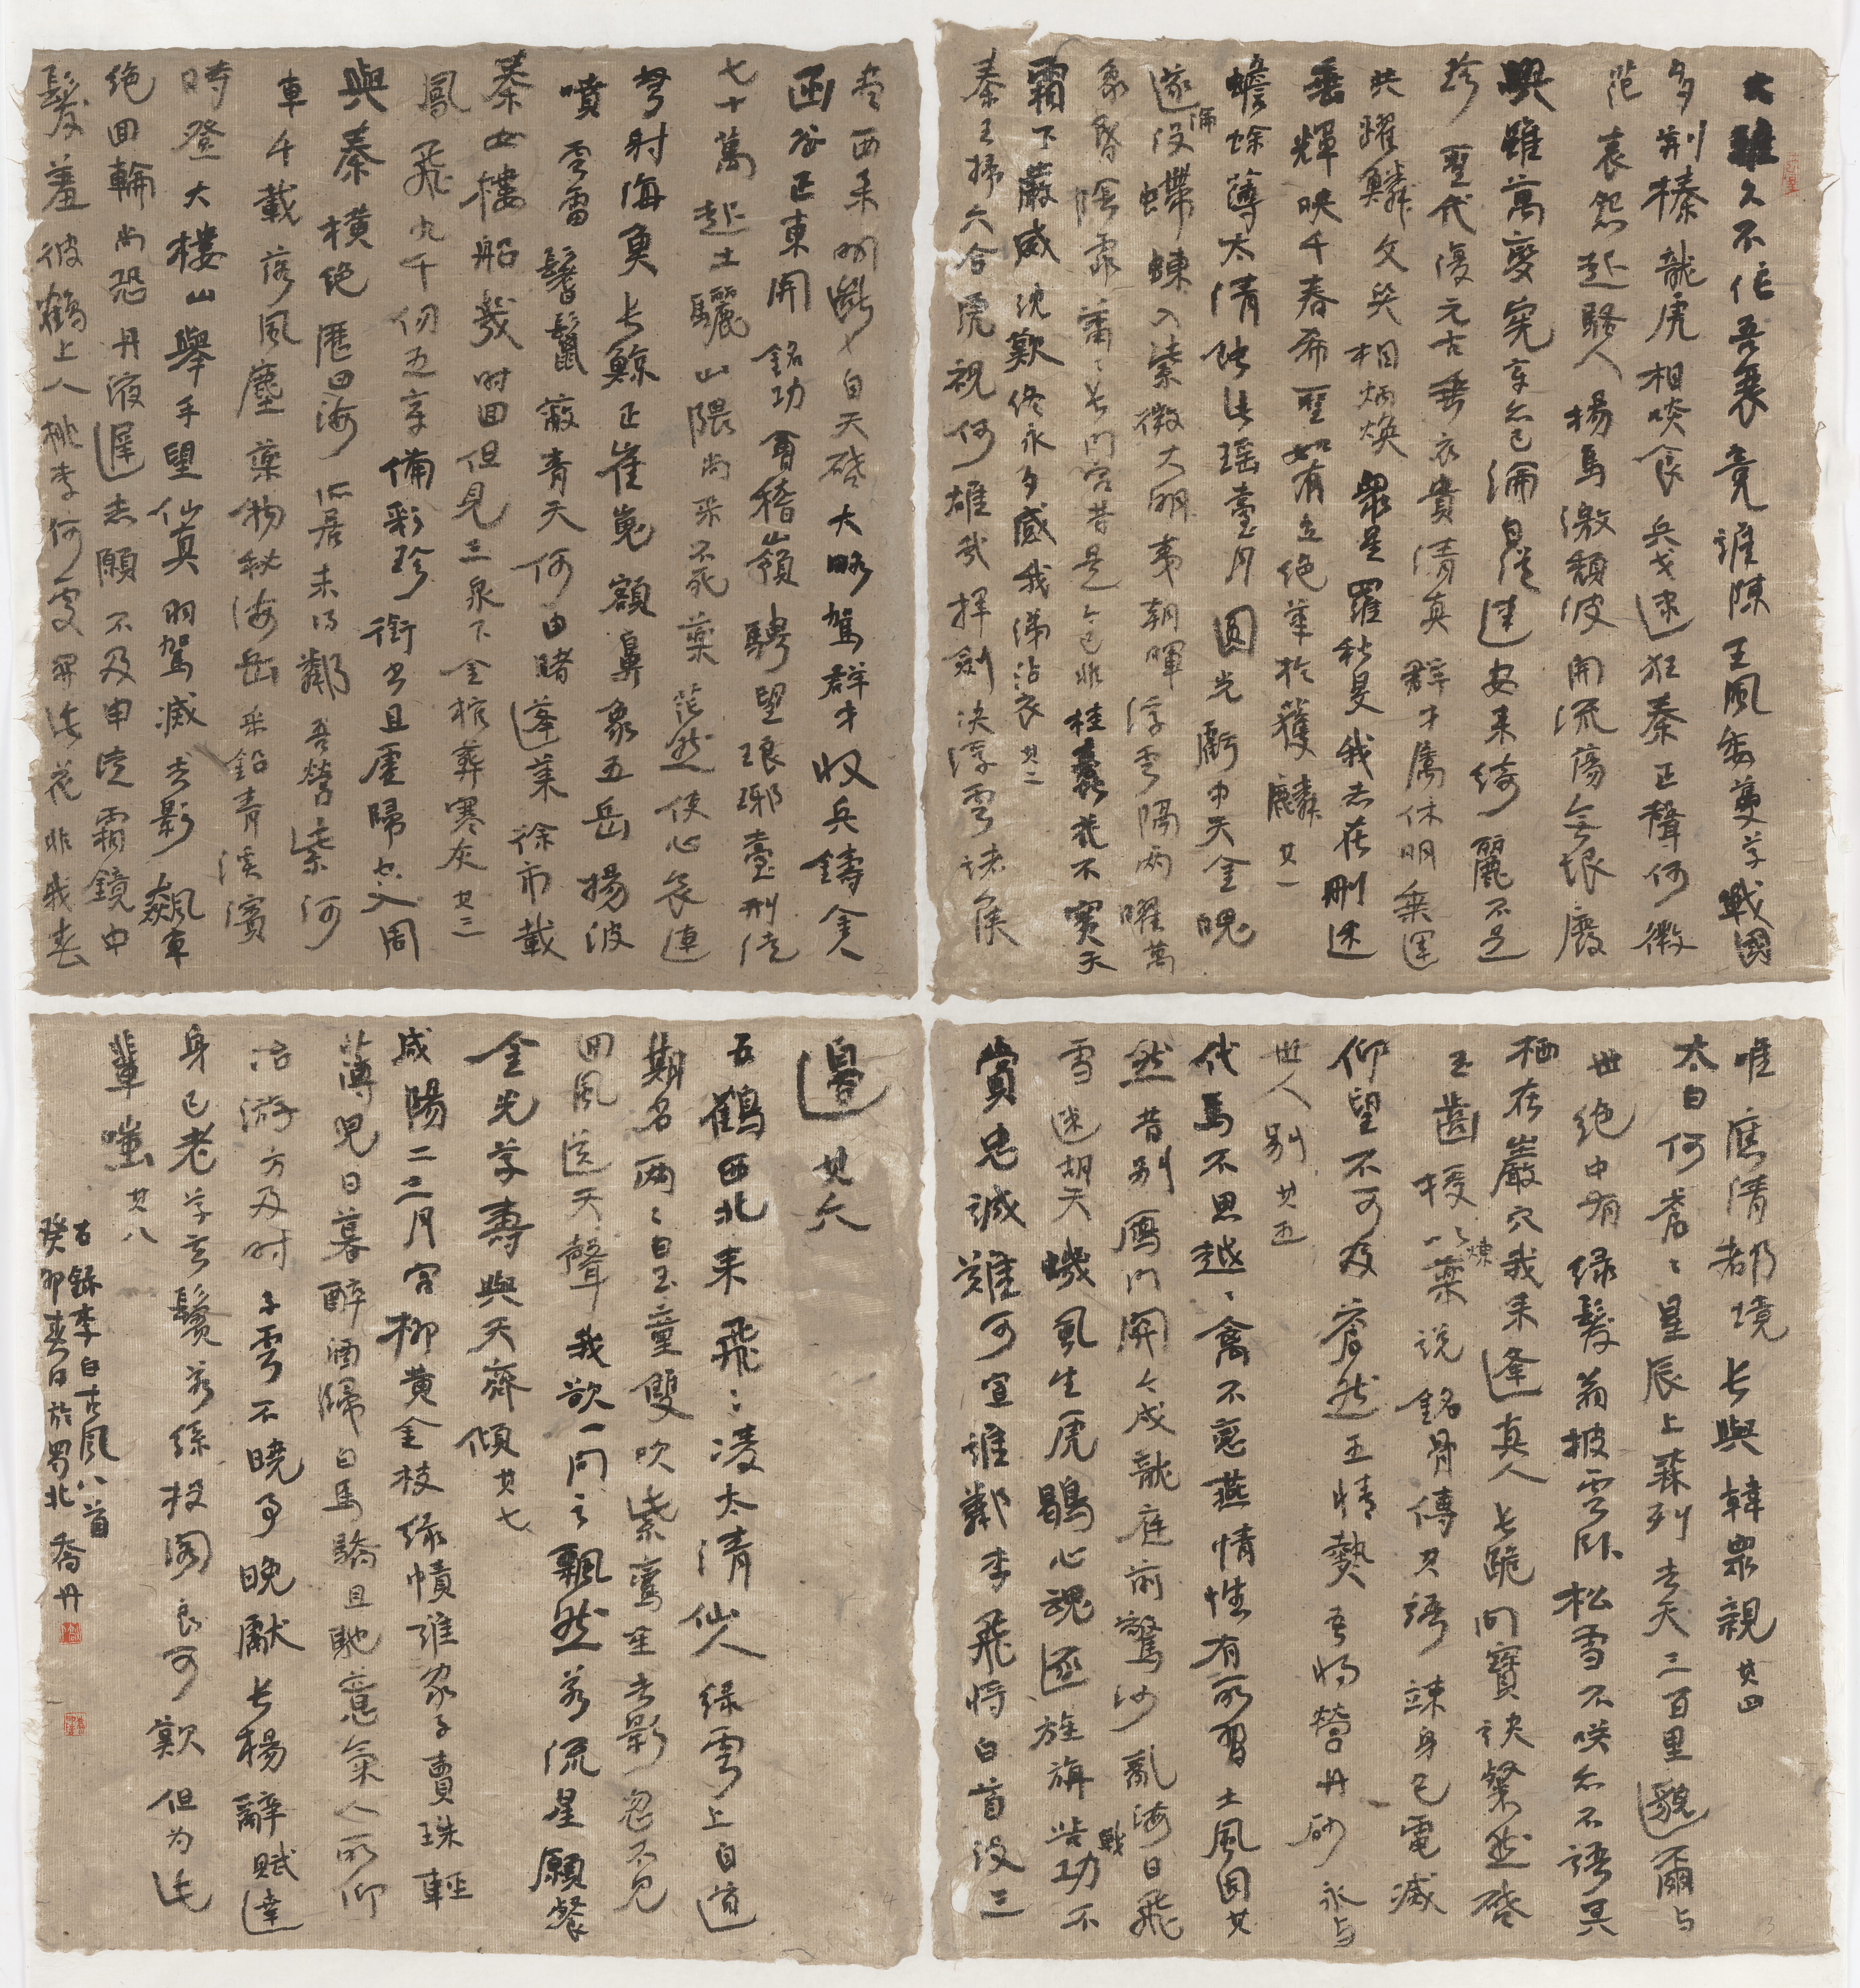 大雅久不作吾衰竟誰陳王風委蔓草戰國
多荆榛龍虎相啖食兵戈逮狂秦正聲何微
茫哀怨起騷人揚馬激頹波開流蕩無垠廢
興雖萬變憲章亦已淪自從建安來綺麗不足
珍聖代復元古垂衣貴清真群才屬休明乘運
共躍鱗文質相炳煥衆星羅秋旻我志在刪述
垂輝映千春希聖如有立絕筆於獲麟其一
蟾蜍薄太清蝕此瑶臺月圓光虧中天金魄
遂淪没螮蝀入紫微大明夷朝暉浮雲隔兩曜萬
象昏陰霏蕭〻長門宫昔是今已非桂蠹花不實天
霜下嚴威沈歎終永夕感我涕沾衣其二
秦王掃六合虎視何雄哉揮劍决浮雲諸侯
盡西來明斷自天啓大略駕群才收兵鑄金人
函谷正東開銘功會稽嶺騁望琅琊臺刑徒
七十萬起土驪山隈尚采不死藥茫然使心哀連
弩射海魚長鯨正崔嵬額鼻象五岳揚波
噴雲雷鬐鬣蔽青天何由睹蓬萊徐市載
秦女樓船幾時回但見三泉下金棺葬寒灰其三
鳳飛九千仞五章備彩珍銜書且虛歸空入周
與秦橫絕歷四海所居未得鄰吾營紫河
車千載落風塵藥物秘海岳采鉛青溪濱
時登大樓山舉手望仙真羽駕滅去影飆車
絕回輪尚恐丹液遲志願不及申徒霜鏡中
髮羞彼鶴上人桃李何處開此花非我春
唯應清都境長與韓衆親其四
太白何蒼〻星辰上森列去天三百里邈爾与
世絕中有緑髮翁披雲卧松雪不咲亦不語冥
栖在巖穴我來逢真人長跪問寶訣粲然啓
玉齒授以煉藥説銘骨傳其語竦身已電滅
仰望不可及蒼然五情熱吾將營丹砂永与
世人别其五
代馬不思越〻禽不戀燕情性有所習土風固其
然昔别雁門關今戍龍庭前驚沙亂海日飛
雪迷胡天蟣虱生虎鶡心魂逐旌旃苦戰功不
賞忠誠難可宣誰憐李飛將白首没三
邊其六
五鶴西北來飛〻凌太清仙人緑雲上自道
期名兩〻白玉童雙吹紫鸞笙去影忽不見
回風送天聲我欲一問之飄然若流星願餐
金光草壽與天齊傾其七
咸陽二三月宫柳黄金枝緑幘誰家子賣珠輕
薄兒日暮醉酒歸白馬驕且馳意氣人所仰
冶游方及时子雲不曉事晚獻長楊辭賦達
身已老草玄鬢若絲投閣良可歎但为此
輩嗤其八
右録李白古風八首
癸卯春日於蜀北喬丹